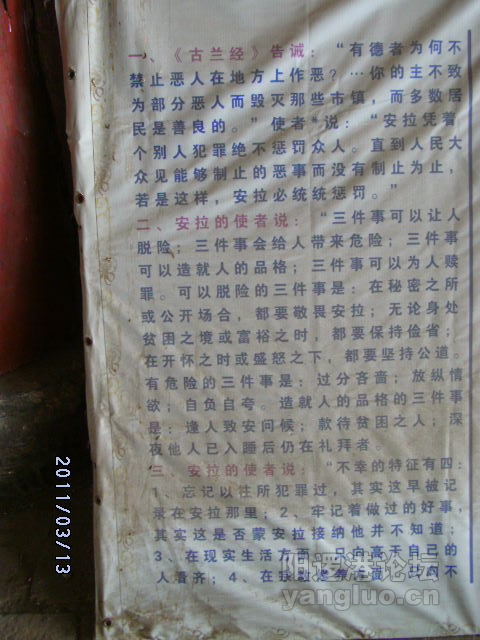 一、《古兰经》告诫：“有德者为何不
禁止恶人在地方上作恶？…你的主不致
为部分恶人而毁灭那些市镇，而多数居
民是善良的。”使者“说：“安拉凭着
个别人犯罪绝不惩罚众人。直到人民大
众见能够制止的恶事而没有制止为止，
若是这样，安拉必统统惩罚。”
二、安拉的使者说：“三件事可以让人
脱险；三件事会给人带来危险；三件事
可以造就人的品格；三件事可以为人赎
罪。可以脱险的三件事是：在秘密之所
或公开场合，都要敬畏安拉；无论身处
贫困之境或富裕之时，都要保持俭省；
在开怀之时或盛怒之下，都要坚持公道。
有危险的三件事是：过分吝啬；放纵情
欲；自负自夸。造就人的品格的三件事
是：逢人致安问候；款待贫困之人；深
夜他人已入睡后仍在礼拜者。
三、安拉的使者说：“不幸的特征有四：
1、忘记以往所犯罪过，其实这早被记
录在安拉那里；2、牢记着做过的好事，
其实这是否蒙安拉接纳他并不知道；
3、在现实生活方面，只向高于自己的
人看齐；4、在
不
2011/03/13
阳逻港论坛
yangluo.cn